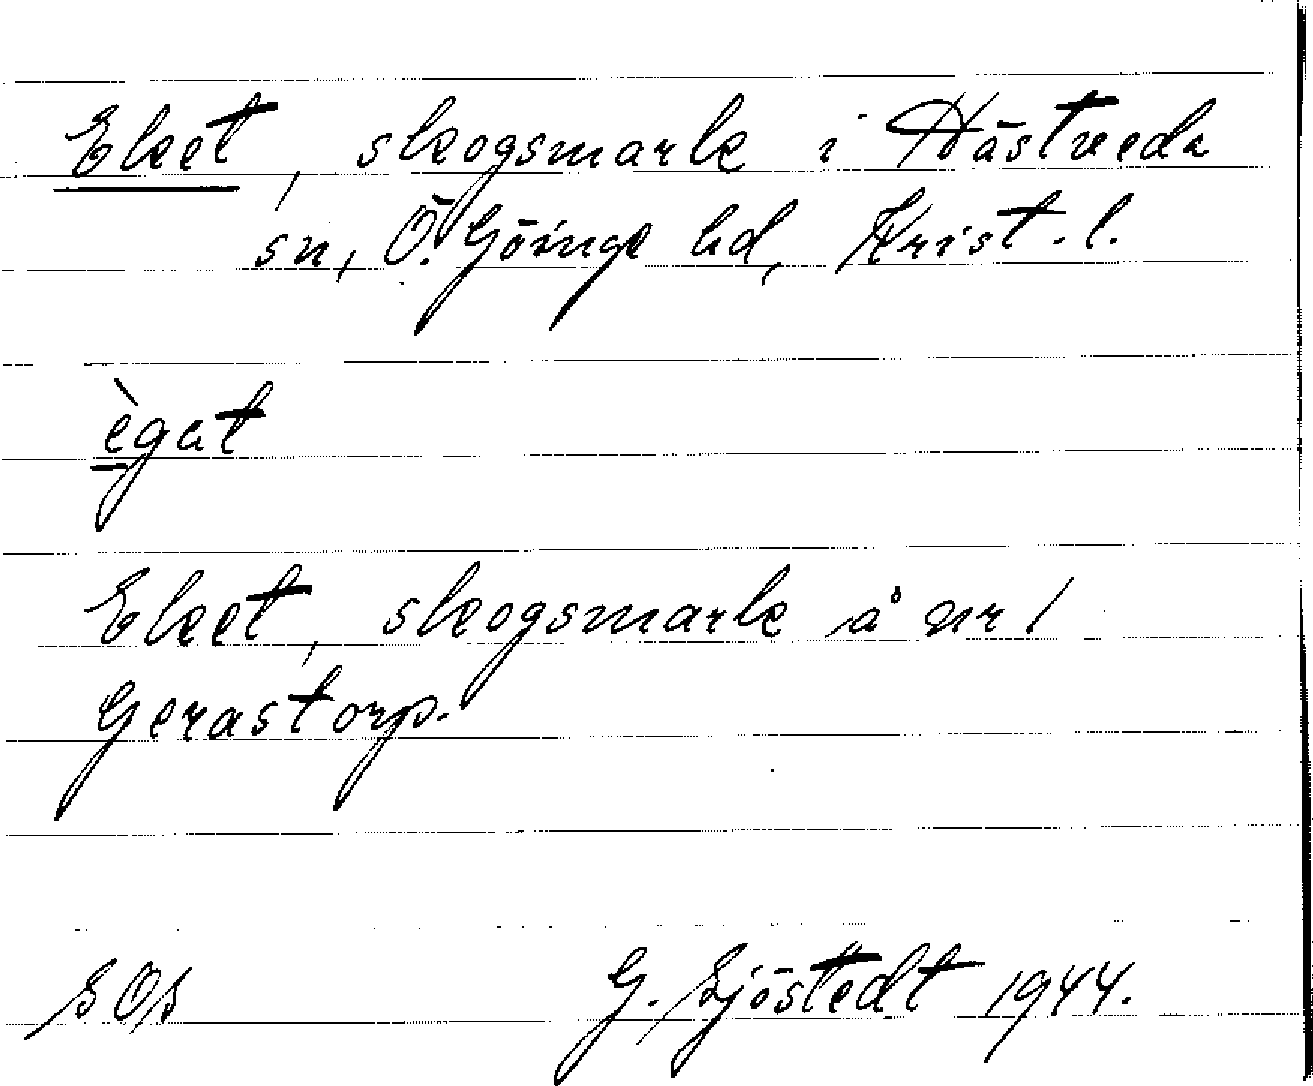 Eket, skogsmark i Hästveda
sn, Ö. Göinge hd, Krist. l.
ègat
Ekeet, skogsmark å nr 1
Gerastorp.
SOS G. Sjöstedt 1944.